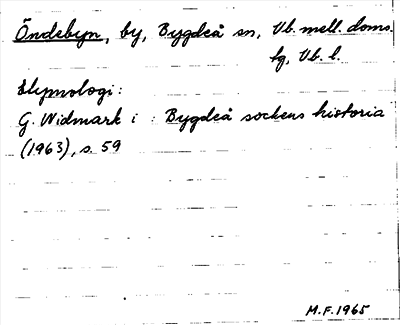 Öndebyn, by, Bygdeå sn, Vb. mell. doms.
tg, Vb. l.
Etymologi:
G. Widmark i : Bygdeå sockens historia
(1963), s. 59
M.F. 1965